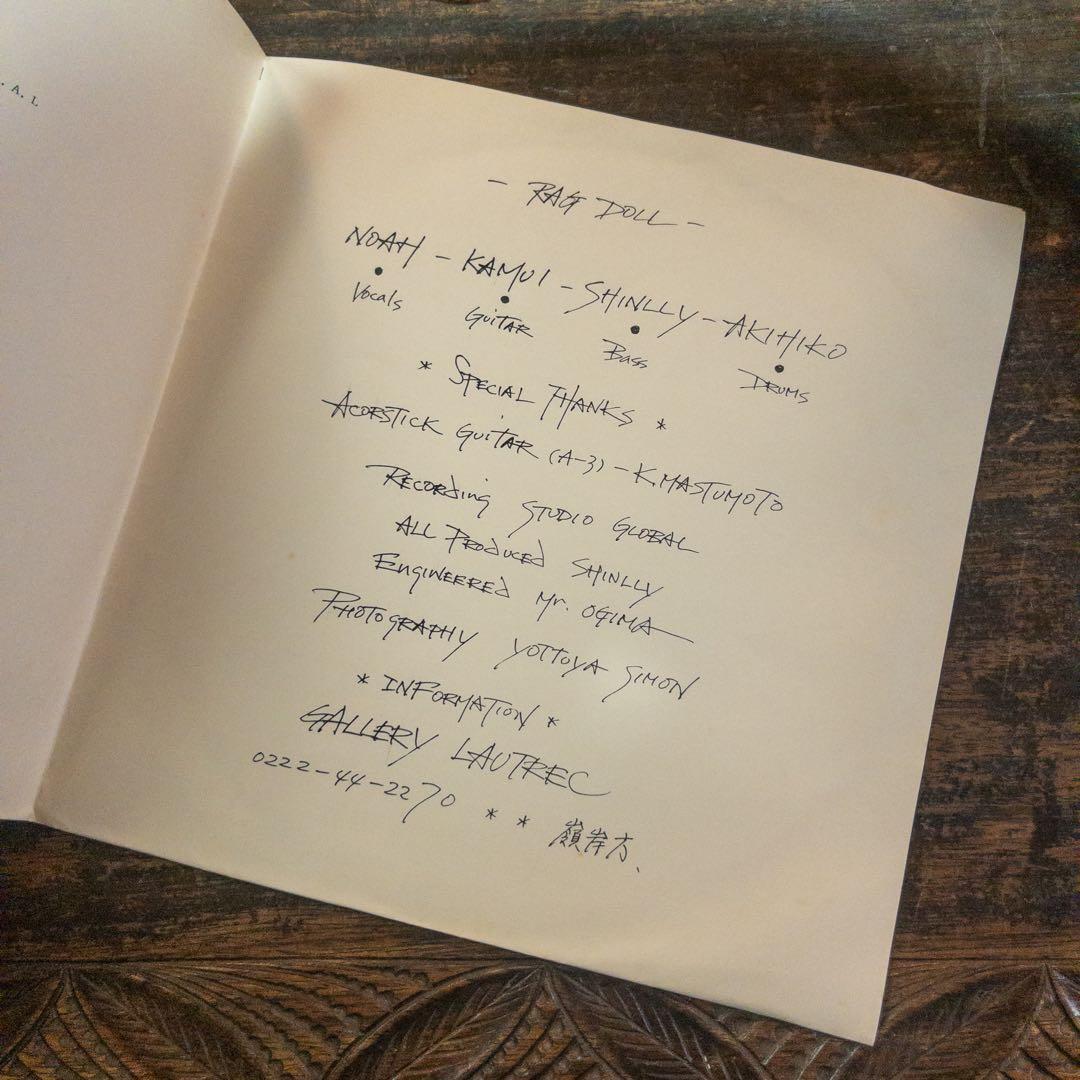 . A. L
- RAG DOLL -
NOAH - KAMUI - SHINLLY - AKIHIKO
Vocals GUITAR Bass DRUMS
* SPECIAL THANKS *
ACORSTICK GUITAR (A-3) - K.MASTUMOTO
RECORding STUDIO GLOBAL
ALL PRODUCED SHINLLY
ENGINEERED Mr. OGIMA
PHOTOGRAPHY YOTTUYA SIMON
* INFORMATION *
GALLERY LAUTREC
0222-44-2270 * * 嶺岸方、